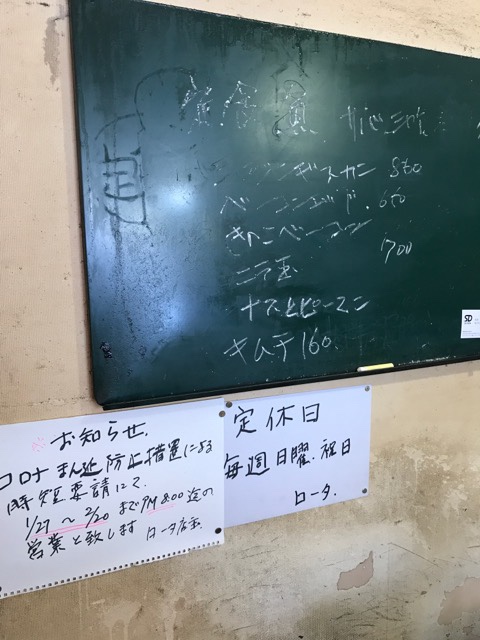 定食
ジンギスカン 850
ベーコンエッグ 650
きのこベーコン 700
ニラ玉
ナスとピーマン
キムチ160
SD
お知らせ
コロナまん延防止措置による
時短要請にて
1/27〜2/20までPM8:00迄の
営業と致します ロータ店主
定休日
毎週日曜、祝日
ロータ.